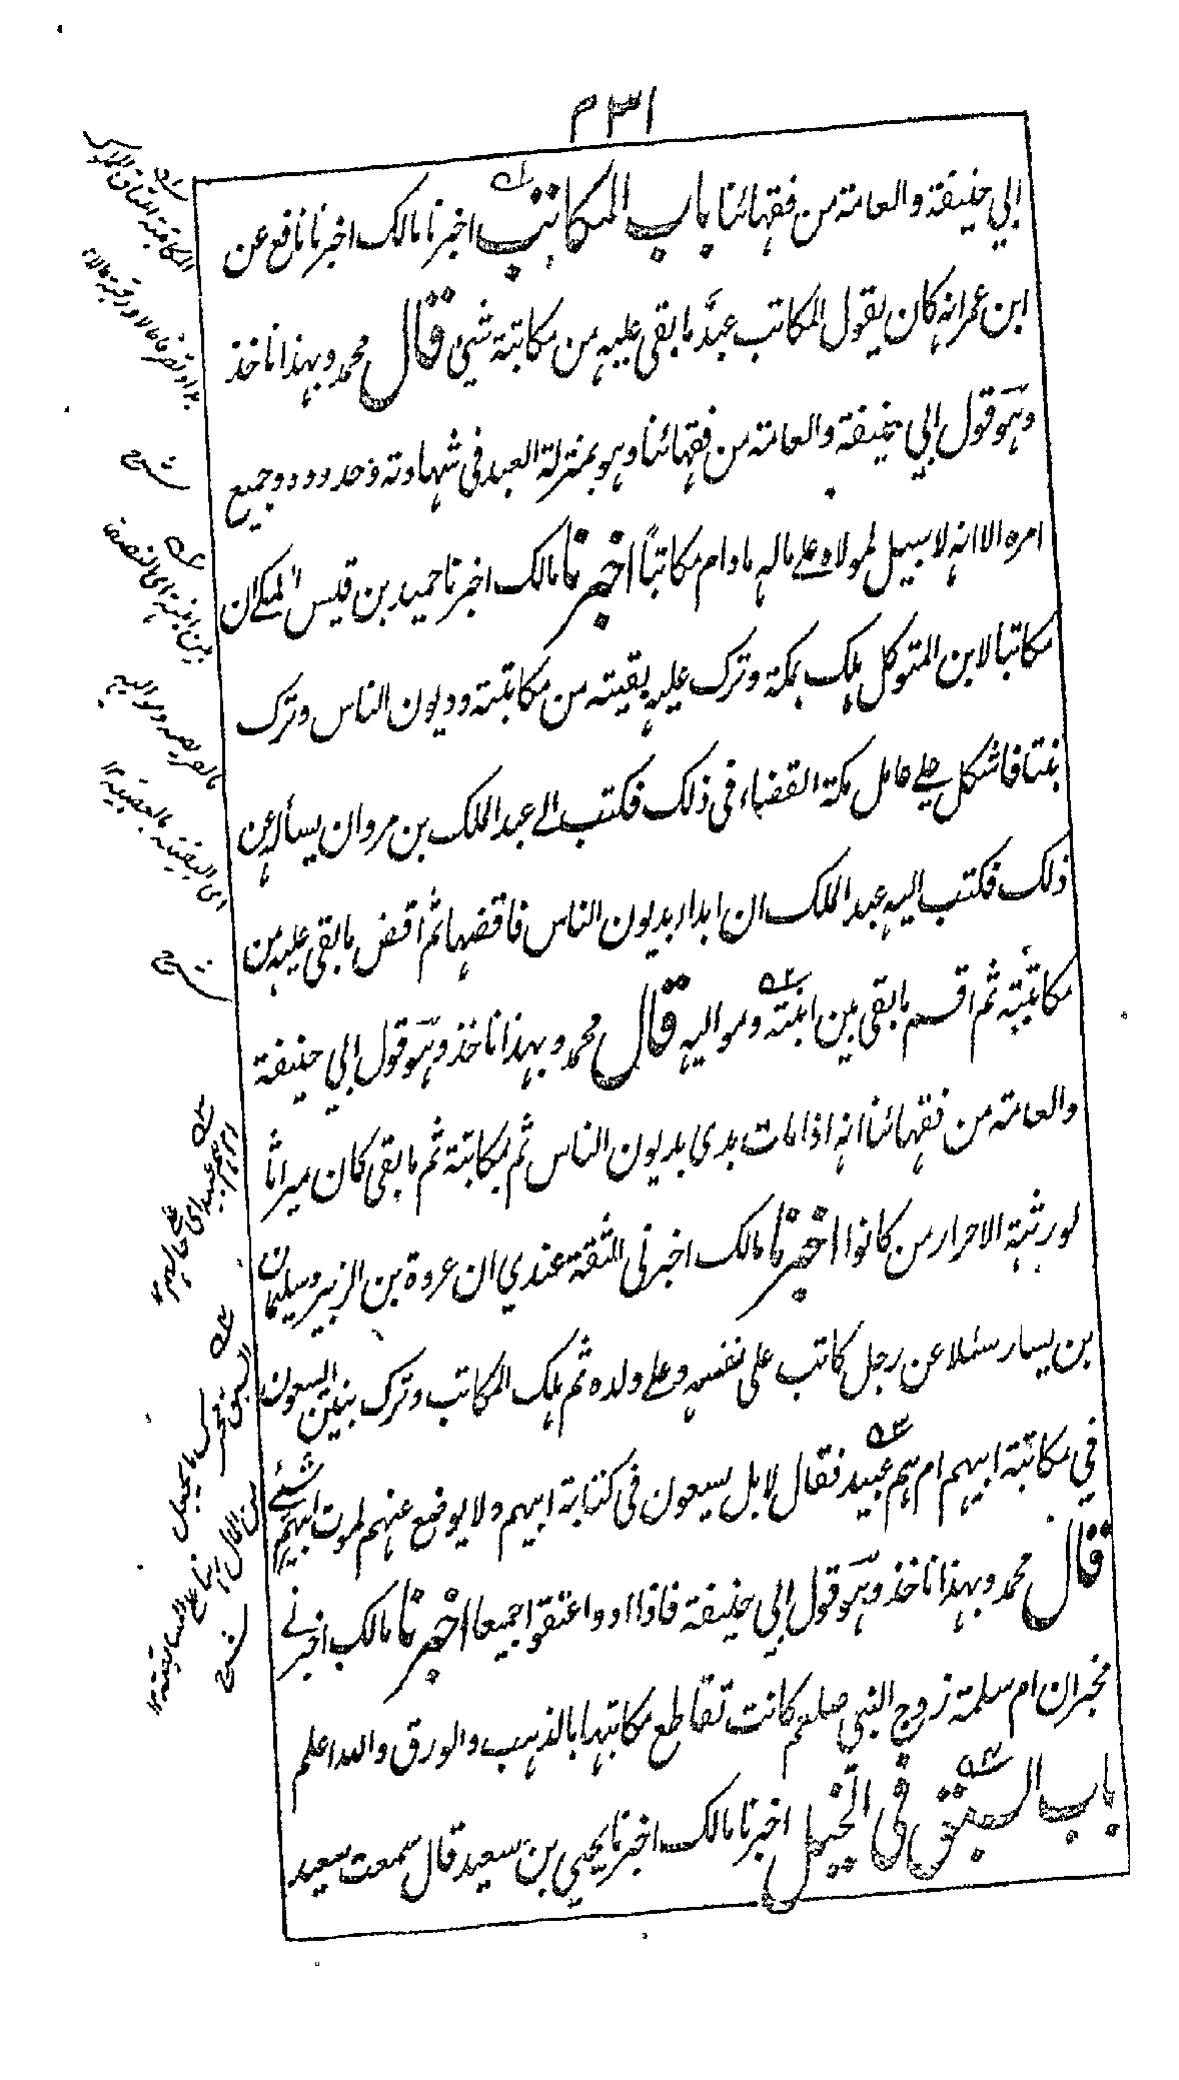 ٣١٢
ابي حنيفة والعامة من فقهائنا باب المكاتب اخبرنا مالك اخبرنا نافع عن
ابن عمر انه كان يقول المكاتب عبد ما بقى عليه من مكاتبته شئ قال محمد وبهذا ناخذ
وهو قول ابي حنيفة والعامة من فقهائنا وهو بمنزلة العبد فى شهادته وحدوده وجميع
امره الا انه لا سبيل لمولاه على ماله مادام مكاتباً اخبرنا مالك اخبرنا حميد بن قيس المكى ان
مكاتبا لابن المتوكل هلك بمكة وترك عليه بقية من مكاتبته وديون الناس وترك
بنتا فاشكل على عامل مكة القضاء فى ذلك فكتب الى عبد الملك بن مروان يسأله عن
ذلك فكتب اليه عبد الملك ان ابدا بديون الناس فاقضها ثم اقض ما بقى عليه من
مكاتبته ثم اقسم ما بقى بين ابنته ومواليه قال محمد وبهذا ناخذ وهو قول ابي حنيفة
والعامة من فقهائنا انه اذا مات بدى بديون الناس ثم بمكاتبته ثم ما بقى كان ميراثا
لورثته الاحرار من كانوا اخبرنا مالك اخبرنى الثقة عندي ان عروة بن الزبير وسليمان
بن يسار سئلا عن رجل كاتب على نفسه وعلى ولده ثم هلك المكاتب وترك بنين ايسعون
في مكاتبة ابيهم ام هم عبيد فقال لا بل يسعون فى كتابة ابيهم ولا يوضع عنهم لموت ابيهم شئ
قال محمد وبهذا ناخذ وهو قول ابي حنيفة فاذا ادوا اعتقوا جميعا اخبرنا مالك اخبرنى
مخبر ان ام سلمة زوج النبي صلعم كانت تقاطع مكاتبيها بالذهب والورق والله اعلم
باب السبق فى الخيل اخبرنا مالك اخبرنا يحيى بن سعيد قال سمعت سعيد
شرح
بين ابنته اى النصف
شرح
شرح